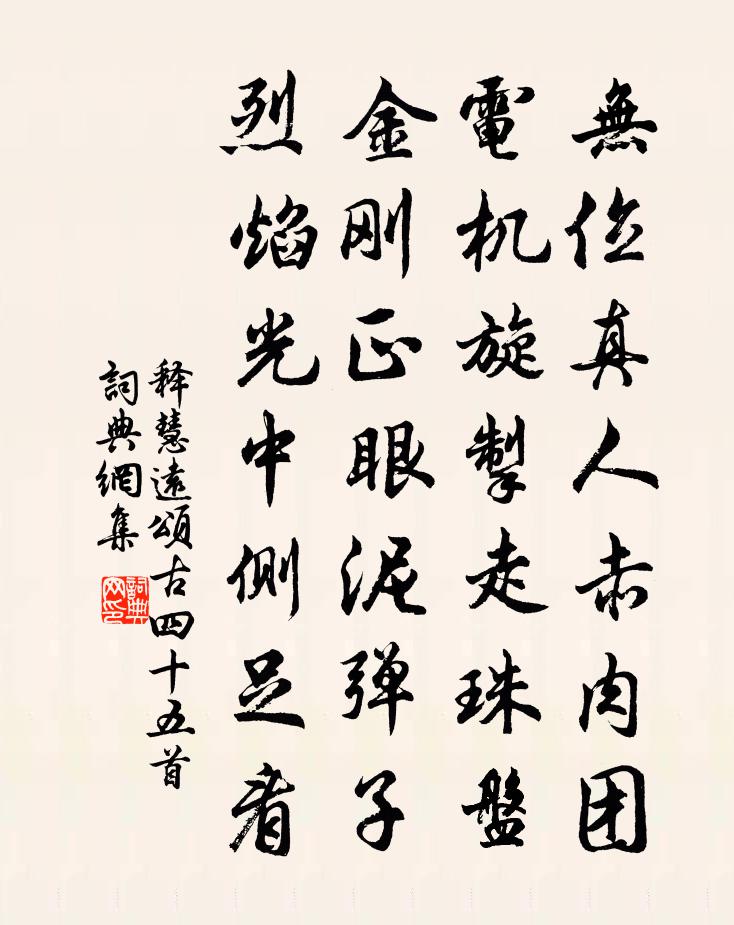 無位真人赤肉团
電机旋掣走珠盤
金刚正眼泥弹子
烈焰光中侧足看
释慧遠頌古四十五首
詞典網集
詞典
网印